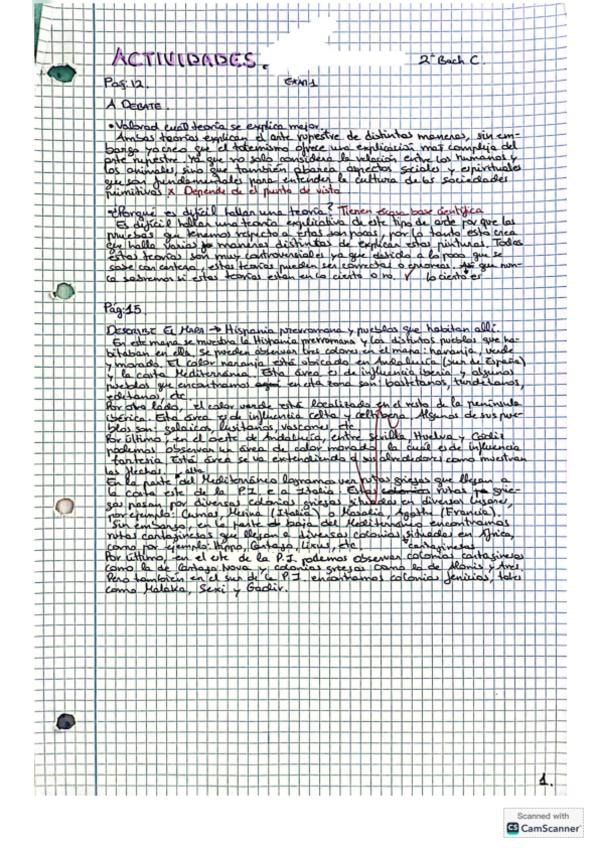 ACTIVIDADES. 2º Bach C.
Pag:12. EXAM 1
A DEBATE.
• Valorad cuál teoría se explica mejor.
Ambas teorías explican el arte rupestre de distintas maneras, sin em-
bargo yo creo que el totemismo ofrece una explicación más compleja del
arte rupestre. Ya que no solo considera la relación entre los humanos y
los animales, sino que también abarca aspectos sociales y espirituales
que son fundamentales para entender la cultura de las sociedades
primitivas x Depende de el punto de vista
¿Porqué es difícil hallar una teoría? Tienen escasa base científica
Es difícil hallar una teoría explicativa de este tipo de arte por que las
pruebas que tenemos respecto a estas son pocas, por lo tanto esto crea
que halla varias maneras distintas de explicar estas pinturas. Todas
estas teorías son muy controversiales ya que debido a lo poco que se
sabe con certeza, estas teorías pueden ser correctas o erróneas. Así que nun-
ca sabremos si estas teorías están en lo cierto o no. lo cierto es
Pág:15.
DESCRIBE EL MAPA → Hispania prerromana y pueblos que habitan allí.
En este mapa se muestra la Hispania prerromana y los distintos pueblos que ha-
bitaban en ella, se pueden observar tres colores en el mapa: naranja, verde
y morado. El color naranja está ubicado en Andalucía (sur de España)
y la costa Mediterránea. Esta área es de influencia ibería y algunos
pueblos que encontramos en esta zona son: bastetanos, turdetanos,
edetanos, etc.
Por otro lado, el color verde está localizado en el resto de la península
ibérica. Esta área es de influencia celta y celtíbera. Algunos de sus pue-
blos son: galaicos, lusitanos, vascones, etc.
Por último, en el oeste de Andalucía, entre Sevilla, Huelva y Cádiz
podemos observar un área de color morado, la cuál es de influencia
tartesia. Esta área se va extendiendo a sus alrededores como muestran
las flechas. alta
En la parte del Mediterráneo logramos ver rutas griegas que llegan a
la costa este de la P.I. e a Italia. rutas grie-
gas pasan por diversas colonias griegas situadas en diversos lugares,
por ejemplo: Cumas, Mesina (Italia) o Masalia, Agathé (Francia).
Sin embargo, en la parte baja del Mediterráneo encontramos
rutas cartaginesas que llegan a diversas colonias situadas en África,
como por ejemplo: Hippo, Cartago, Lixus, etc. cartaginesas
Por último, en el este de la P.I. podemos observar colonias cartaginesas
como la de Cartago Nova y colonias griegas como la de Alonis y
Pero también en el sur de la P.I. encontramos colonias fenicias, tales
como Malaka, Sexi y Gadir.
1.
Scanned with
CS CamScanner